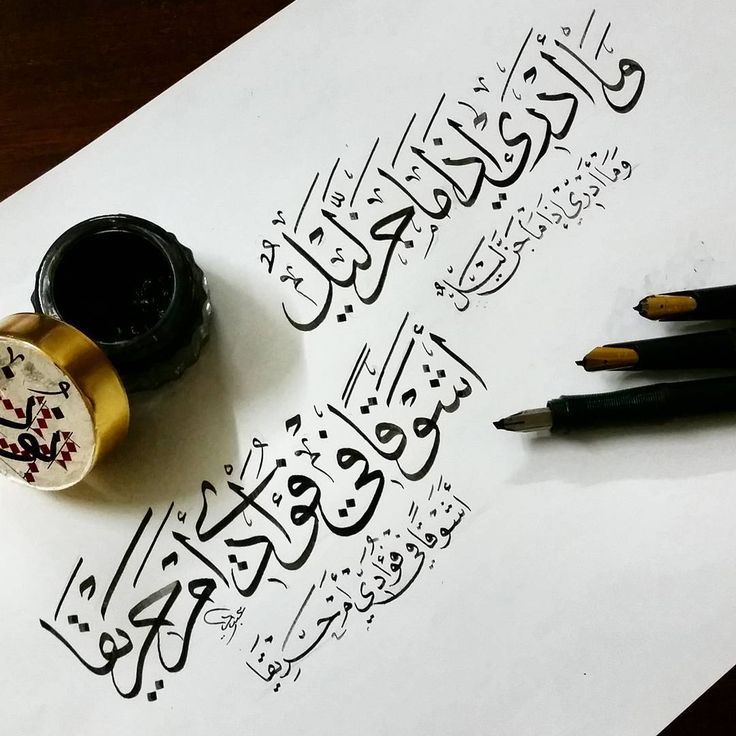 وَمَا أَدْرِي إِذَا مَا جَنَّ لَيْلٌ
وَمَا أَدْرِي إِذَا مَا جَنَّ لَيْلٌ
أَشَوْقًا فِي فُؤَادِي أَمْ حَرِيقَا
أَشَوْقًا فِي فُؤَادِي أَمْ حَرِيقَا